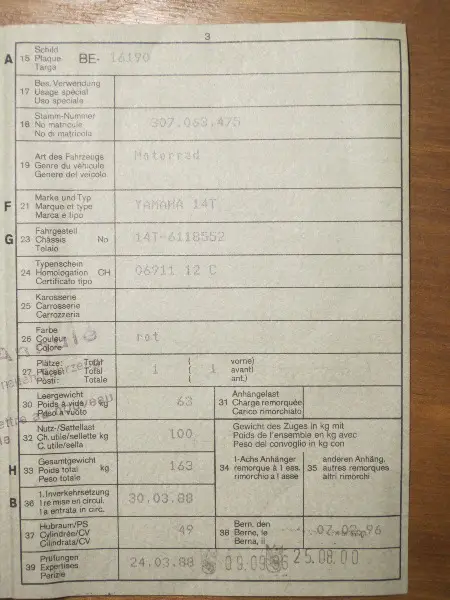 3
A 15 Schild
Plaque BE- 16190
Targa
17 Bes. Verwendung
Usage spécial
Uso speciale
18 Stamm-Nummer
No matricule 307.063.475
No di matricola
19 Art des Fahrzeugs Motorrad
Genre du véhicule
Genere del veicolo
F 21 Marke und Typ
Marque et type YAMAHA 14T
Marca e tipo
G 23 Fahrgestell
Châssis No 14T-6118552
Telaio
24 Typenschein
Homologation CH 06911 12 C
Certificato tipo
25 Karosserie
Carrosserie
Carrozzeria
26 Farbe
Couleur rot
Colore
27 Plätze: Total ( vorne)
Places: Total 1 ( 1 avant)
Posti: Totale ( ant.)
30 Leergewicht
Poids à vide kg 63
Peso a vuoto
31 Anhängelast
Charge remorquée
Carico rimorchiato
32 Nutz-/Sattellast
Ch. utile/sellette kg 100
C. utile/sella
Gewicht des Zuges in kg mit
Poids de l'ensemble en kg avec
Peso del convoglio in kg con
H 33 Gesamtgewicht
Poids total kg 163
Peso totale
34 1-Achs Anhänger
remorque à 1 ess.
rimorchio a 1 asse
35 anderen Anhäng.
autres remorques
altri rimorchi
B 36 1. Inverkehrsetzung
1re mise en circul. 30.03.88
1a entrata in circ.
37 Hubraum/PS
Cylindrée/CV 49
Cilindrata/CV
38 Bern, den
Berne, le 96
Berna, il
39 Prüfungen
Expertises 24.03.88 25.08.00
Perizie